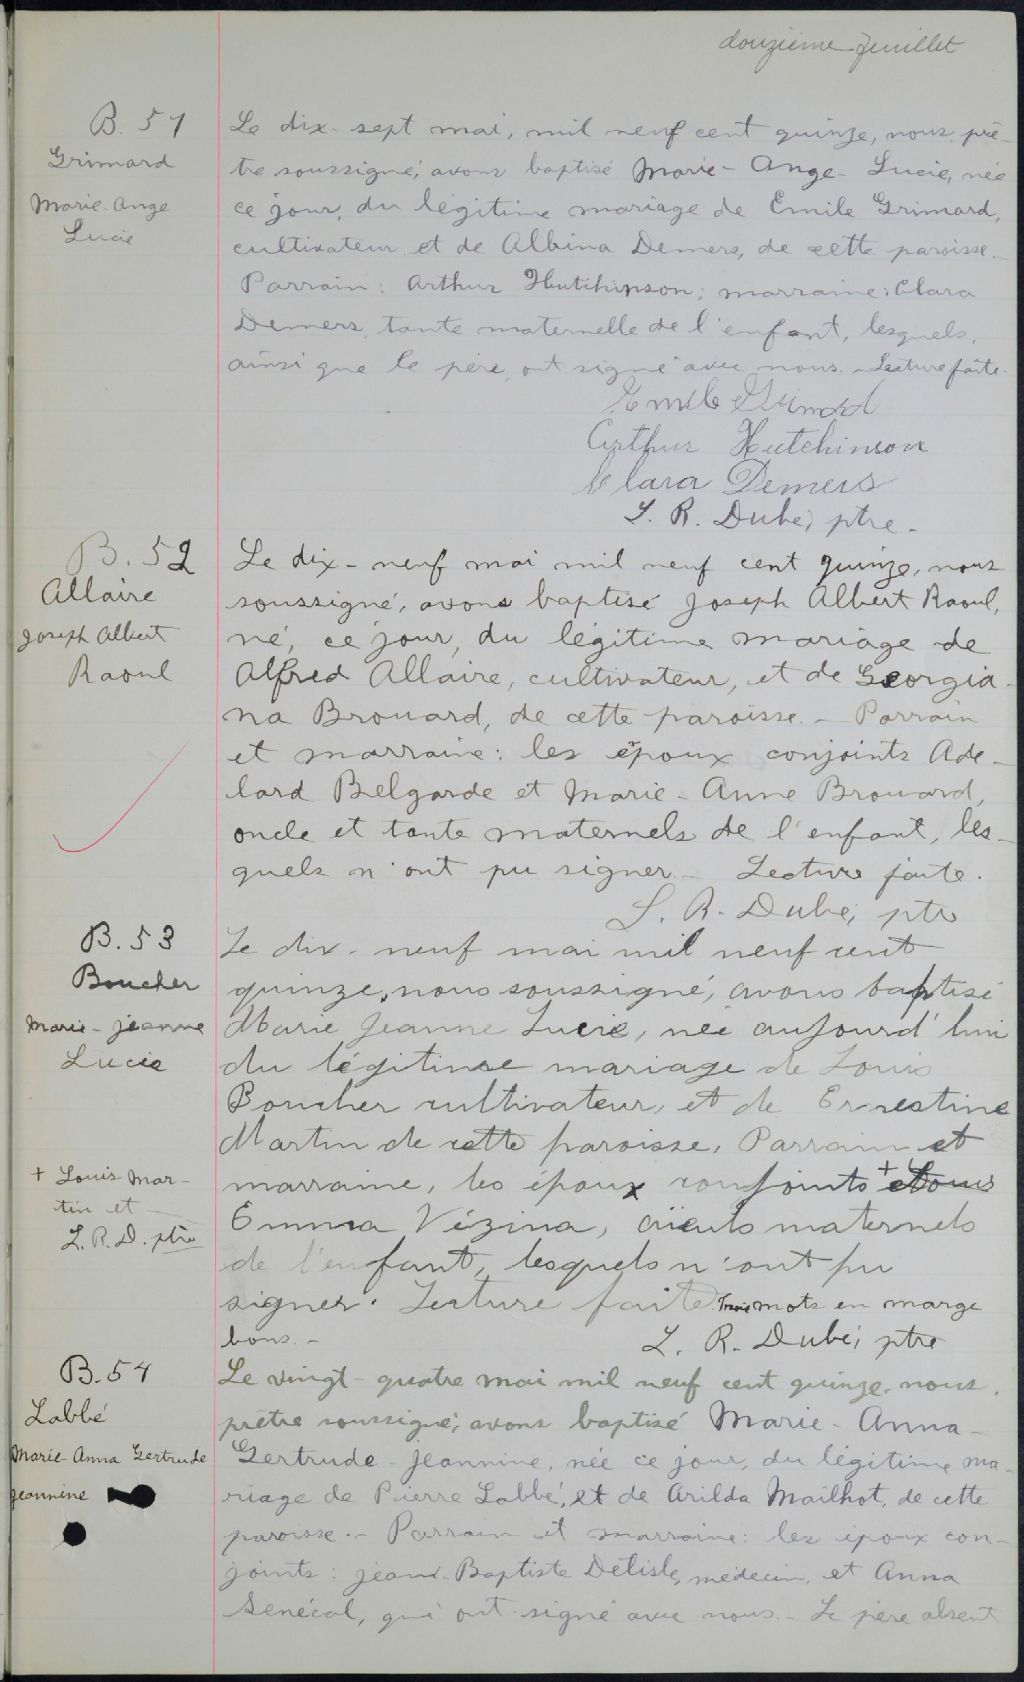 douzième feuillet
B. 51
Grimard
Marie-Ange
Lucie
Le dix-sept mai, mil neuf cent quinze, nous, prê-
tre soussigné, avons baptisé Marie-Ange-Lucie, née
ce jour, du légitime mariage de Emile Grimard,
cultivateur et de Albina Demers, de cette paroisse.-
Parrain : Arthur Hutchinson; marraine: Clara
Demers, tante maternelle de l'enfant, lesquels,
ainsi que le père, ont signé avec nous. - Lecture faite.
Emile Grimard
Arthur Hutchinson
Clara Demers
L. R. Dubé, ptre-
B. 52
Allaire
Joseph Albert
Raoul
Le dix-neuf mai mil neuf cent quinze, nous
soussigné, avons baptisé Joseph Albert Raoul,
né, ce jour, du légitime mariage de
Alfred Allaire, cultivateur, et de Georgia-
na Brouard, de cette paroisse. - Parrain
et marraine: les époux conjoints Adé-
lard Belgarde et Marie-Anne Brouard,
oncle et tante maternels de l'enfant, les-
quels n'ont pu signer.- Lecture faite.
L. R. Dubé, ptre
B. 53
Boucher
Marie-Jeanne
Lucie
Le dix-neuf mai mil neuf cent
quinze, nous soussigné, avons baptisé
Marie Jeanne Lucie, née aujourd'hui
du légitime mariage de Louis
Boucher cultivateur, et de Ernestine
Martin de cette paroisse. Parrain et
marraine, les époux conjoints + Louis
+ Louis Mar-
tin et
L. R. D. ptre
Emma Vézina, aïeuls maternels
de l'enfant, lesquels n'ont pu
signer. Lecture faite. Trois mots en marge
bons.-
L. R. Dubé, ptre
B. 54
Labbé
Marie-Anna Gertrude
Jeannine
Le vingt-quatre mai mil neuf cent quinze, nous,
prêtre soussigné, avons baptisé Marie-Anna-
Gertrude-Jeannine, née ce jour, du légitime ma-
riage de Pierre Labbé, et de Arilda Mailhot, de cette
paroisse.- Parrain et marraine: les époux con-
joints : Jean-Baptiste Delisle, médecin, et Anna
Senécal, qui ont signé avec nous.- Le père absent